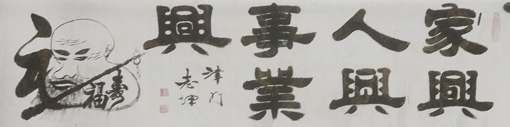 家興
人興
事業
興
津門
老坤
福壽